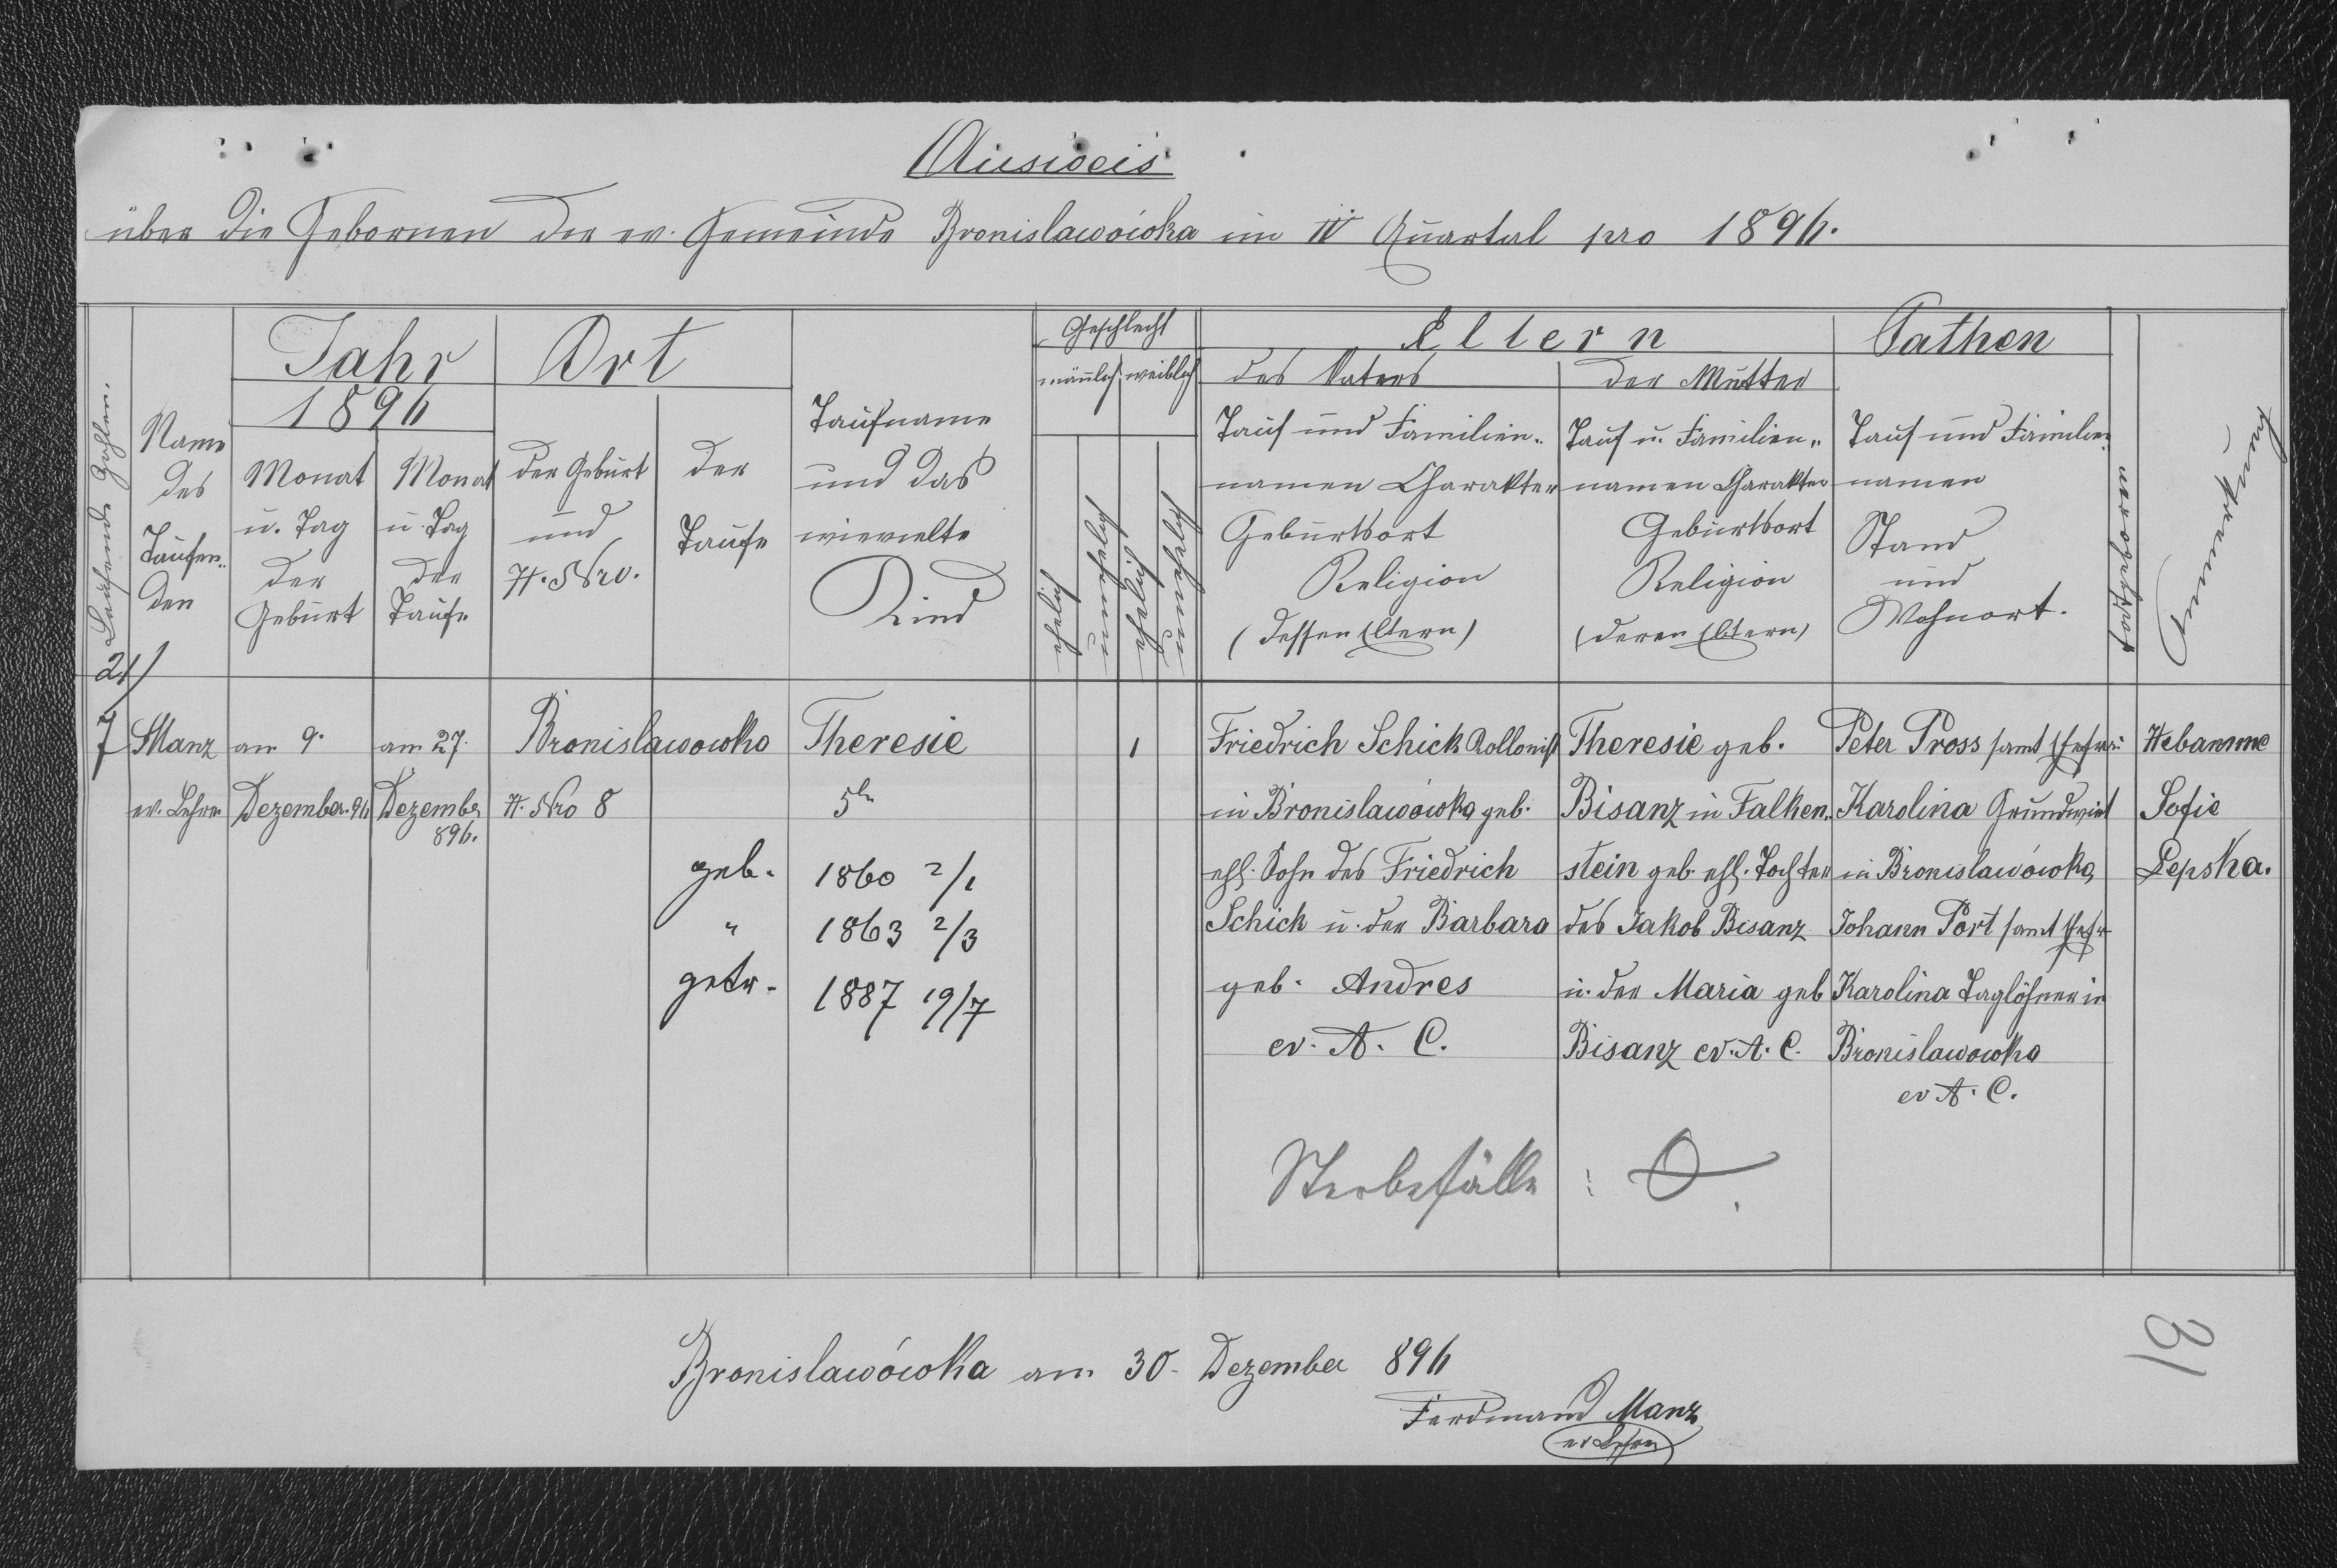 Ausweis
über die Gebornen der ev. Gemeinde Bronislawówka im IV Quartal pro 1896.
Laufende Zahlen.
Name
des
Taufen-
den
Jahr
1896
Monat
u. Tag
der
Geburt
Monat
u. Tag
der
Taufe
Ort
der Geburt
und
H. Nro.
der
Taufe
Taufname
und das
wievielte
Kind
Geschlecht
mänlich
weiblich
ehelich
unehelich
ehelich
unehelich
Eltern
des Vaters
Tauf und Familien-
namen Charakter
Geburtsort
Religion
(dessen Eltern)
der Mutter
Tauf u. Familien-
namen Charakter
Geburtsort
Religion
(deren Eltern)
Pathen
Tauf und Familien-
namen
Stand
und
Wohnort.
todtgeboren
Anmerkung
21/
7
Manz
ev. Lehrer
am 9.
Dezember 96
am 27.
Dezember
896.
Bronislawowka
H. Nro 8
Theresie
5te
geb. 1860 2/1
" 1863 2/3
getr. 1887 19/7
1
Friedrich Schick Kollonist
in Bronislawówka geb.
ehl. Sohn des Friedrich
Schick u. der Barbara
geb. Andres
ev. A. C.
Theresie geb.
Bisanz in Falken-
stein geb. ehl. Tochter
des Jakob Bisanz
u. der Maria geb
Bisanz ev. A. C.
Peter Pross samt Ehefrau
Karolina Grundwirt
in Bronislawówka,
Johann Port samt Ehefr
Karolina Taglöhner in
Bronislawowka
ev A. C.
Hebamme
Sofie
Lepska.
Sterbefälle : 0.
Bronislawówka am 30. Dezember 896
Ferdinand Manz
ev Lehrer
31